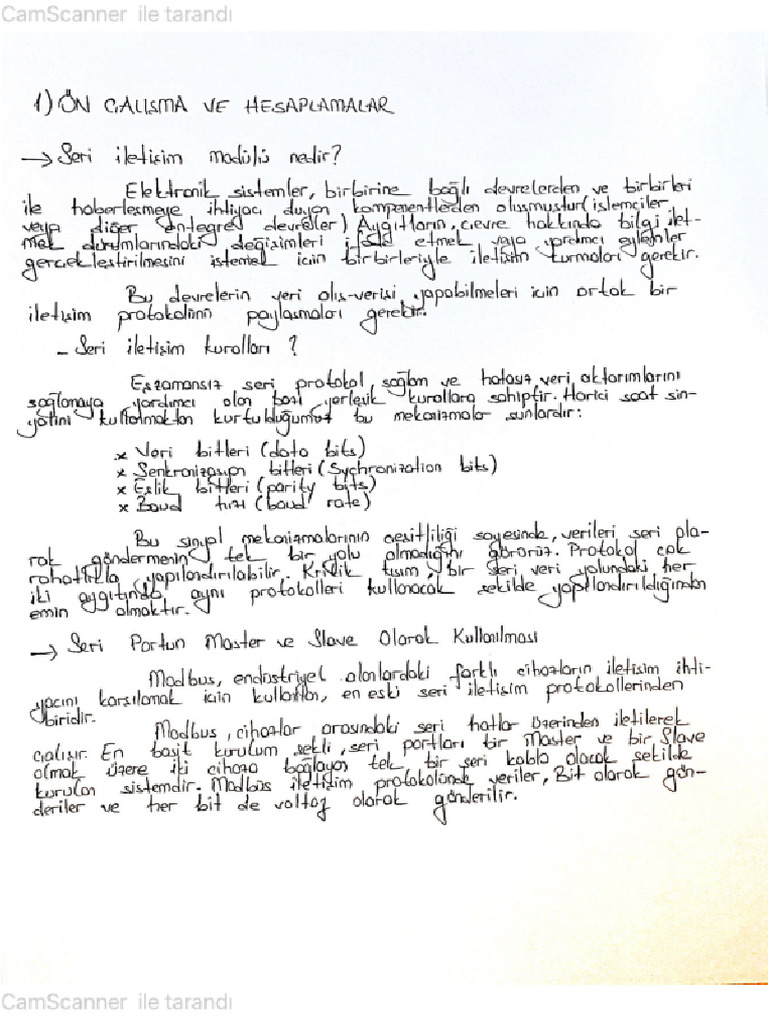 CamScanner ile tarandı
1) ÖN ÇALIŞMA VE HESAPLAMALAR
→ Seri iletişim modülü nedir?
Elektronik sistemler, birbirine bağlı devrelerden ve birbirleri
ile haberleşmeye ihtiyacı duyan komponentlerden oluşmuştur (işlemciler
veya diğer entegre devreler) Aygıtların, çevre hakkında bilgi ilet-
mek durumlarındaki değişimleri ifade etmek veya yardımcı eylemler
gerçekleştirilmesini istemek için birbirleriyle iletişim kurmaları gerekir.
Bu devrelerin veri alış-verişi yapabilmeleri için ortak bir
iletişim protokolünü paylaşmaları gerekir.
- Seri iletişim kuralları ?
Eşzamansız seri protokol, sağlam ve hatasız veri aktarımlarını
sağlamaya yardımcı olan bazı yerleşik kurallara sahiptir. Harici saat sin-
yalini kullanmaktan kurtulduğumuz bu mekanizmalar şunlardır:
× Veri bitleri (data bits)
× Senkronizasyon bitleri (Sychronization bits)
× Eşlik bitleri (parity bits)
× Baud hızı (baud rate)
Bu sinyal mekanizmalarının çeşitliliği sayesinde, verileri seri ola-
rak göndermenin tek bir yolu olmadığını görürüz. Protokol çok
rahatlıkla yapılandırılabilir. Kritik kısım, bir seri veri yolundaki her
iki aygıtında aynı protokolleri kullanacak şekilde yapılandırıldığından
emin olmaktır.
→ Seri Portun Master ve Slave Olarak Kullanılması
Modbus, endüstriyel alanlardaki farklı cihazların iletişim ihti-
yacını karşılamak için kullanılan, en eski seri iletişim protokollerinden
biridir.
Modbus, cihazlar arasındaki seri hatlar üzerinden iletilerek
çalışır. En basit kurulum şekli, seri portları bir Master ve bir Slave
olmak üzere iki cihaza bağlayan tek bir seri kablo olacak şekilde
kurulan sistemdir. Modbus iletişim protokolünde veriler, Bit olarak gön-
deriler ve her bit de voltaj olarak gönderilir.
CamScanner ile tarandı